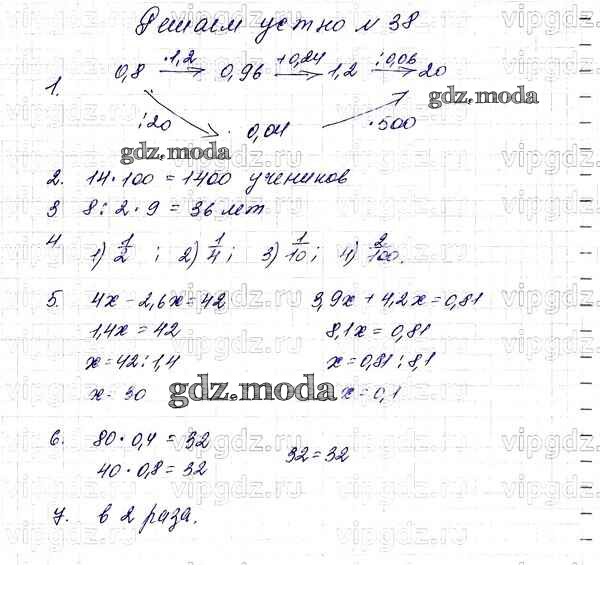 Решаем устно №38
1. 0,8 ·1,2 → 0,96 +0,24 → 1,2 :0,06 → 20
:20 0,04 ·500
gdz.moda
gdz.moda
2. 14·100 = 1400 учеников
3 8:2·9 = 36 лет
4 1) 1/2 ; 2) 1/4 ; 3) 1/10 ; 4) 2/100.
5. 4x - 2,6x = 42 3,9x + 4,2x = 0,81
1,4x = 42 8,1x = 0,81
x = 42:1,4 x = 0,81:8,1
x = 30 x = 0,1
gdz.moda
6. 80·0,4 = 32 32 = 32
40·0,8 = 32
7. в 2 раза.
vipgdz.ru